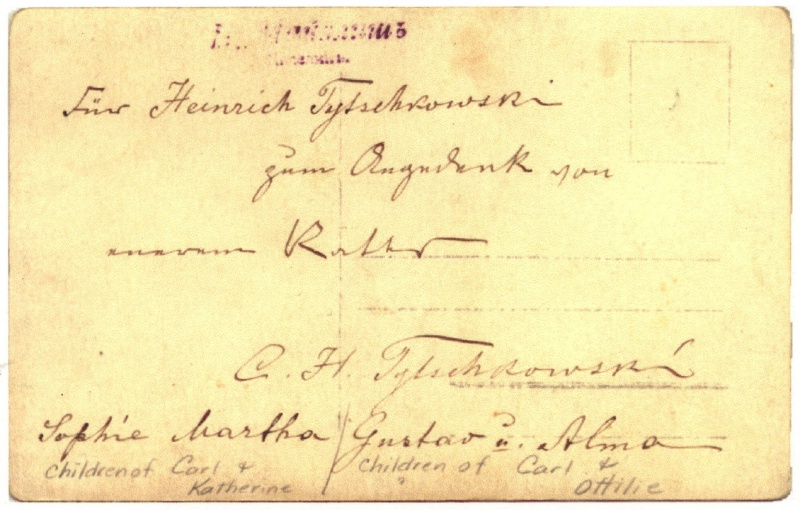 Für Heinrich Tytschkowski
zum Angedenk von
euerem
C. H. Tytschkowski
Sophie Martha Gustav u. Alma
Children of Carl & Children of Carl &
Katherine " Ottilie